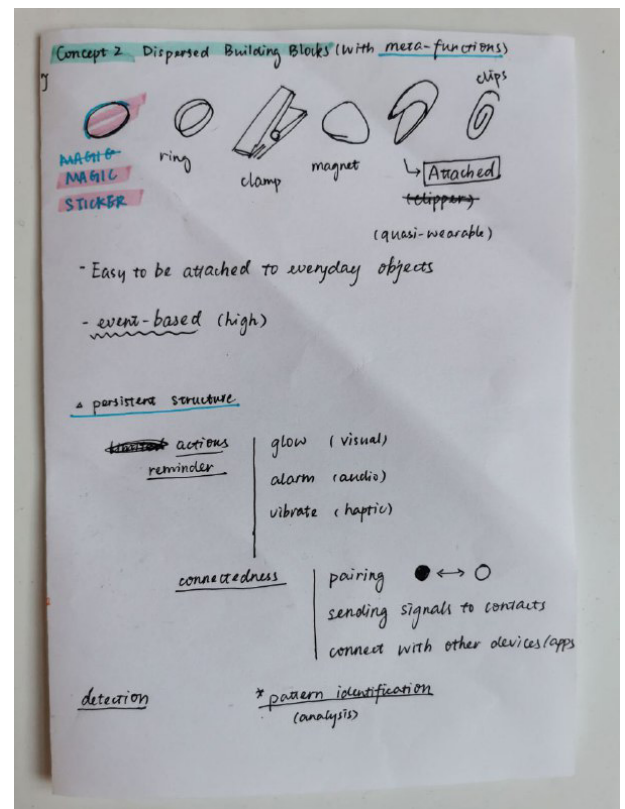 Concept 2 Dispersed Building Blocks (with meta-functions)
clips
MAGIC
MAGIC
STICKER
ring
clamp
magnet
Attached
(clipper)
(quasi-wearable)
- Easy to be attached to everyday objects
- event-based (high)
persistent structure
actions
reminder
glow (visual)
alarm (audio)
vibrate (haptic)
connectedness
pairing ● ↔ ○
sending signals to contacts
connect with other devices/apps
detection
* pattern identification
(analysis)